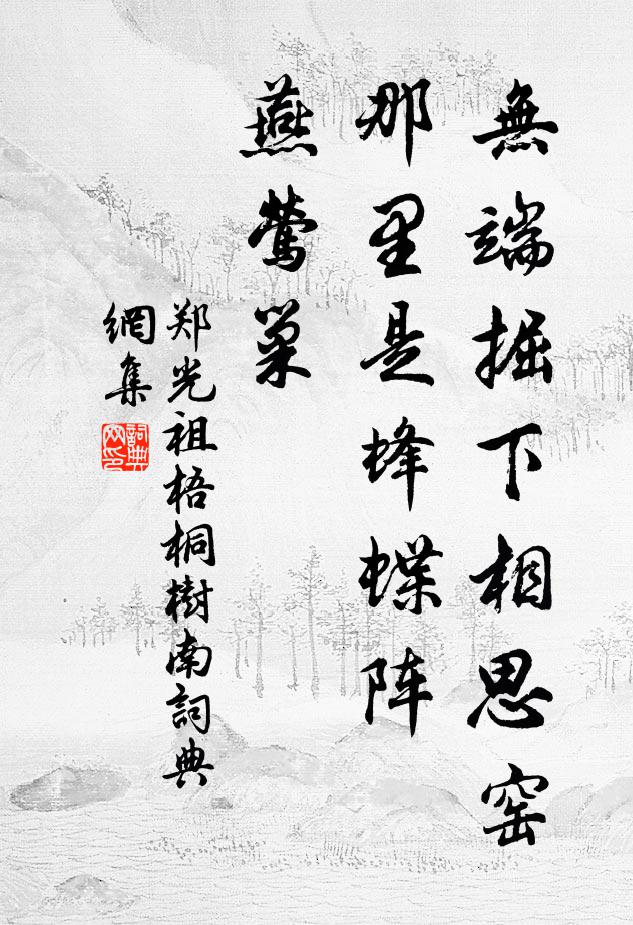 無端掘下相思窑
那里是蜂蝶阵
燕莺巢
郑光祖梧桐樹南詞典
網集
詞典
网印